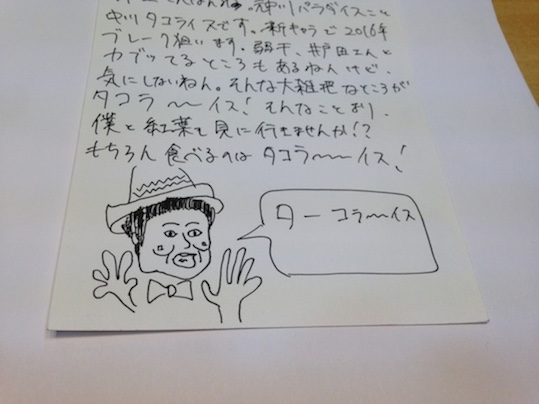 こんばんわ。神川パラダイスこと
中川タコライスです。新キャラで2016年
ブレーク狙います。弱干、井戸田さんと
カブッてるところもあるねんけど、
気にしないねん。そんな大雑把なところが
タコラ〜〜イス！そんなことより、
僕と紅葉を見に行きませんか!?
もちろん食べるのはタコラ〜〜イス！
ターコラ〜〜イス